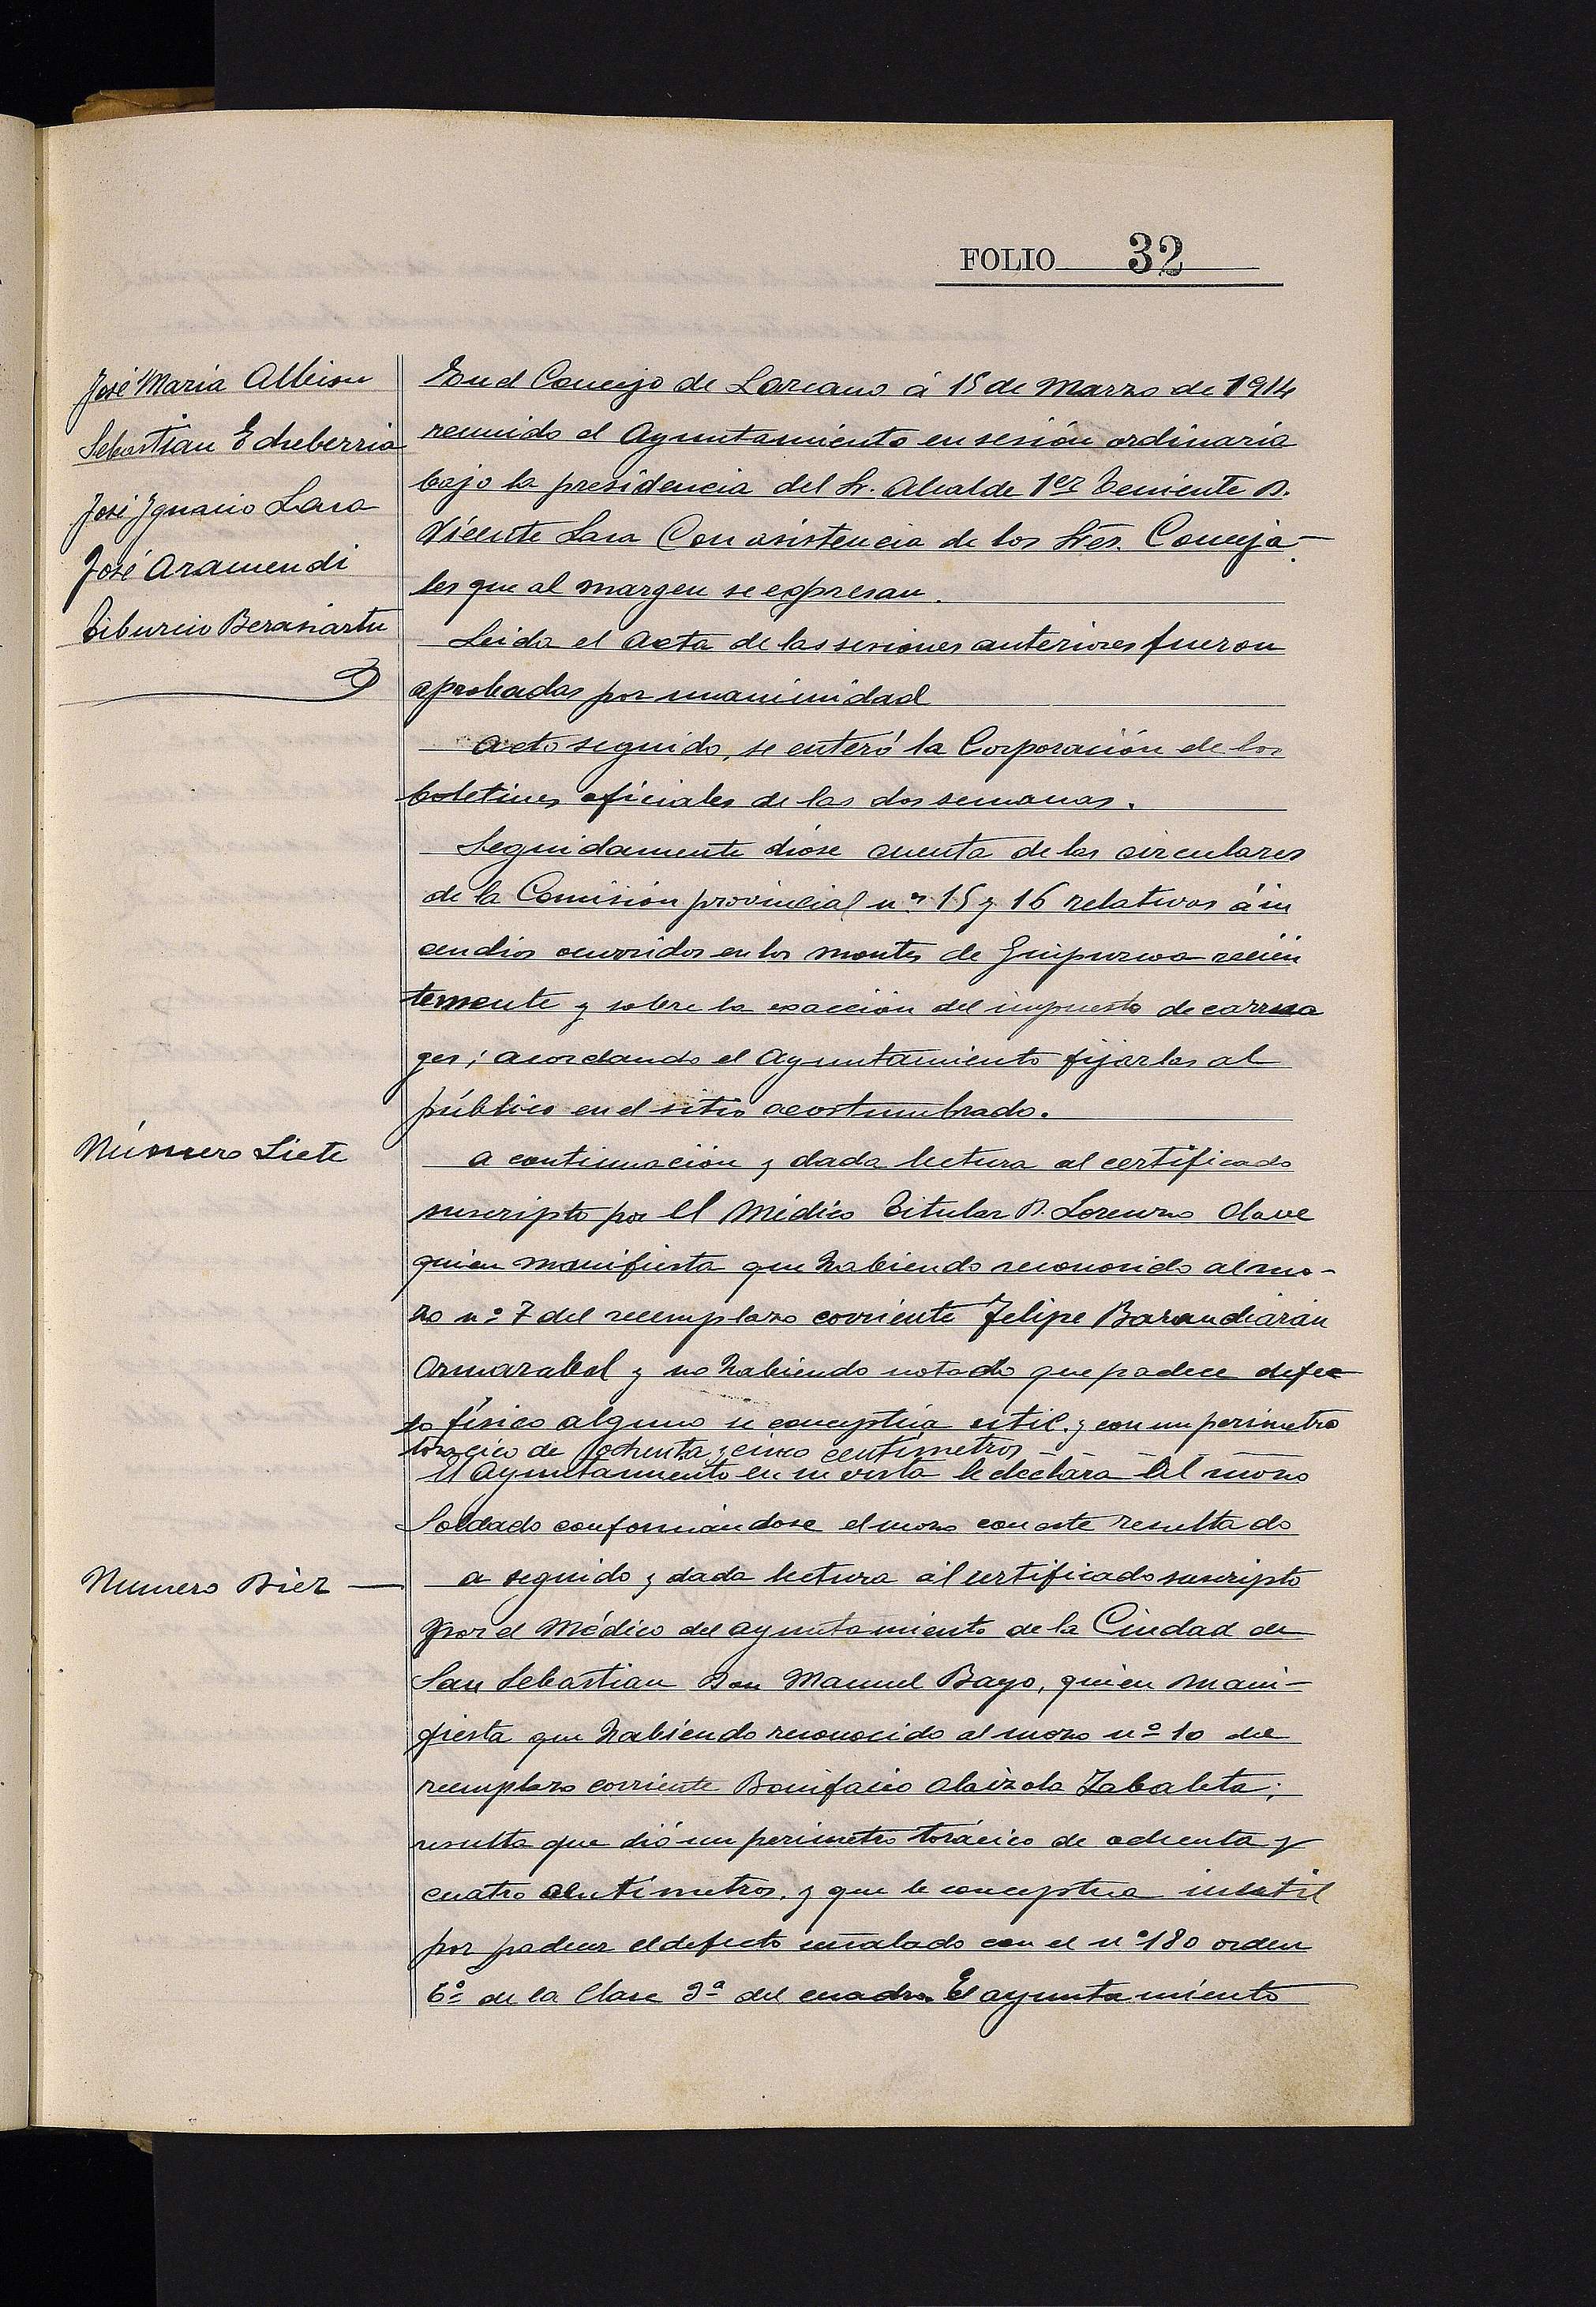 FOLIO 32
José Maria Albisu
Sebastian Echeberria
José Ignacio Lasa
José Aramendi
Tiburcio Berasiartu
En el Concejo de Lazcano á 15 de Marzo de 1914
reunido el Ayuntamiento en sesión ordinaria
bajo la presidencia del Sr. Alcalde 1er Teniente D.
Vicente Lasa Con asistencia de los Sres. Conceja-
les que al margen se expresan.
Leida el Acta de las sesiones anteriores fueron
aprobadas por unanimidad
Acto seguido, se enteró la Corporación de los
boletines oficiales de las dos semanas.
Seguidamente dióse cuenta de las circulares
de la Comisión provincial nos 15 y 16 relativas á in
cendios ocurridos en los montes de Guipuzcoa recien
temente y sobre la exacción del impuesto de carrua
ges; acordando el Ayuntamiento fijarlas al
público en el sitio acostumbrado.
Número Siete
A continuación y dada lectura al certificado
suscripto por El Médico Titular D. Lorenzo Olave
quien manifiesta que habiendo reconocido al mo-
zo nº 7 del reemplazo corriente Felipe Barandiarán
Armarabal y no habiendo notado que padece defec
to físico alguno se conceptúa util. y con un perimetro
torácico de ochenta y cinco centímetros
El Ayuntamiento en su vista le declara tal mozo
Soldado conformándose el mozo con este resultado
Numero Diez —
A seguido y dada lectura al certificado suscripto
por el Médico del ayuntamiento de la Ciudad de
San Sebastian Don Manuel Bayo, quien mani-
fiesta que habiendo reconocido al mozo nº 10 del
reemplazo corriente Bonifacio Olaizola Zabaleta;
resulta que dió un perimetro torácico de ochenta y
cuatro centímetros, y que le conceptua inutil
por padecer el defecto señalado con el nº 180 orden
6º de la Clase 3ª del cuadro. El ayuntamiento